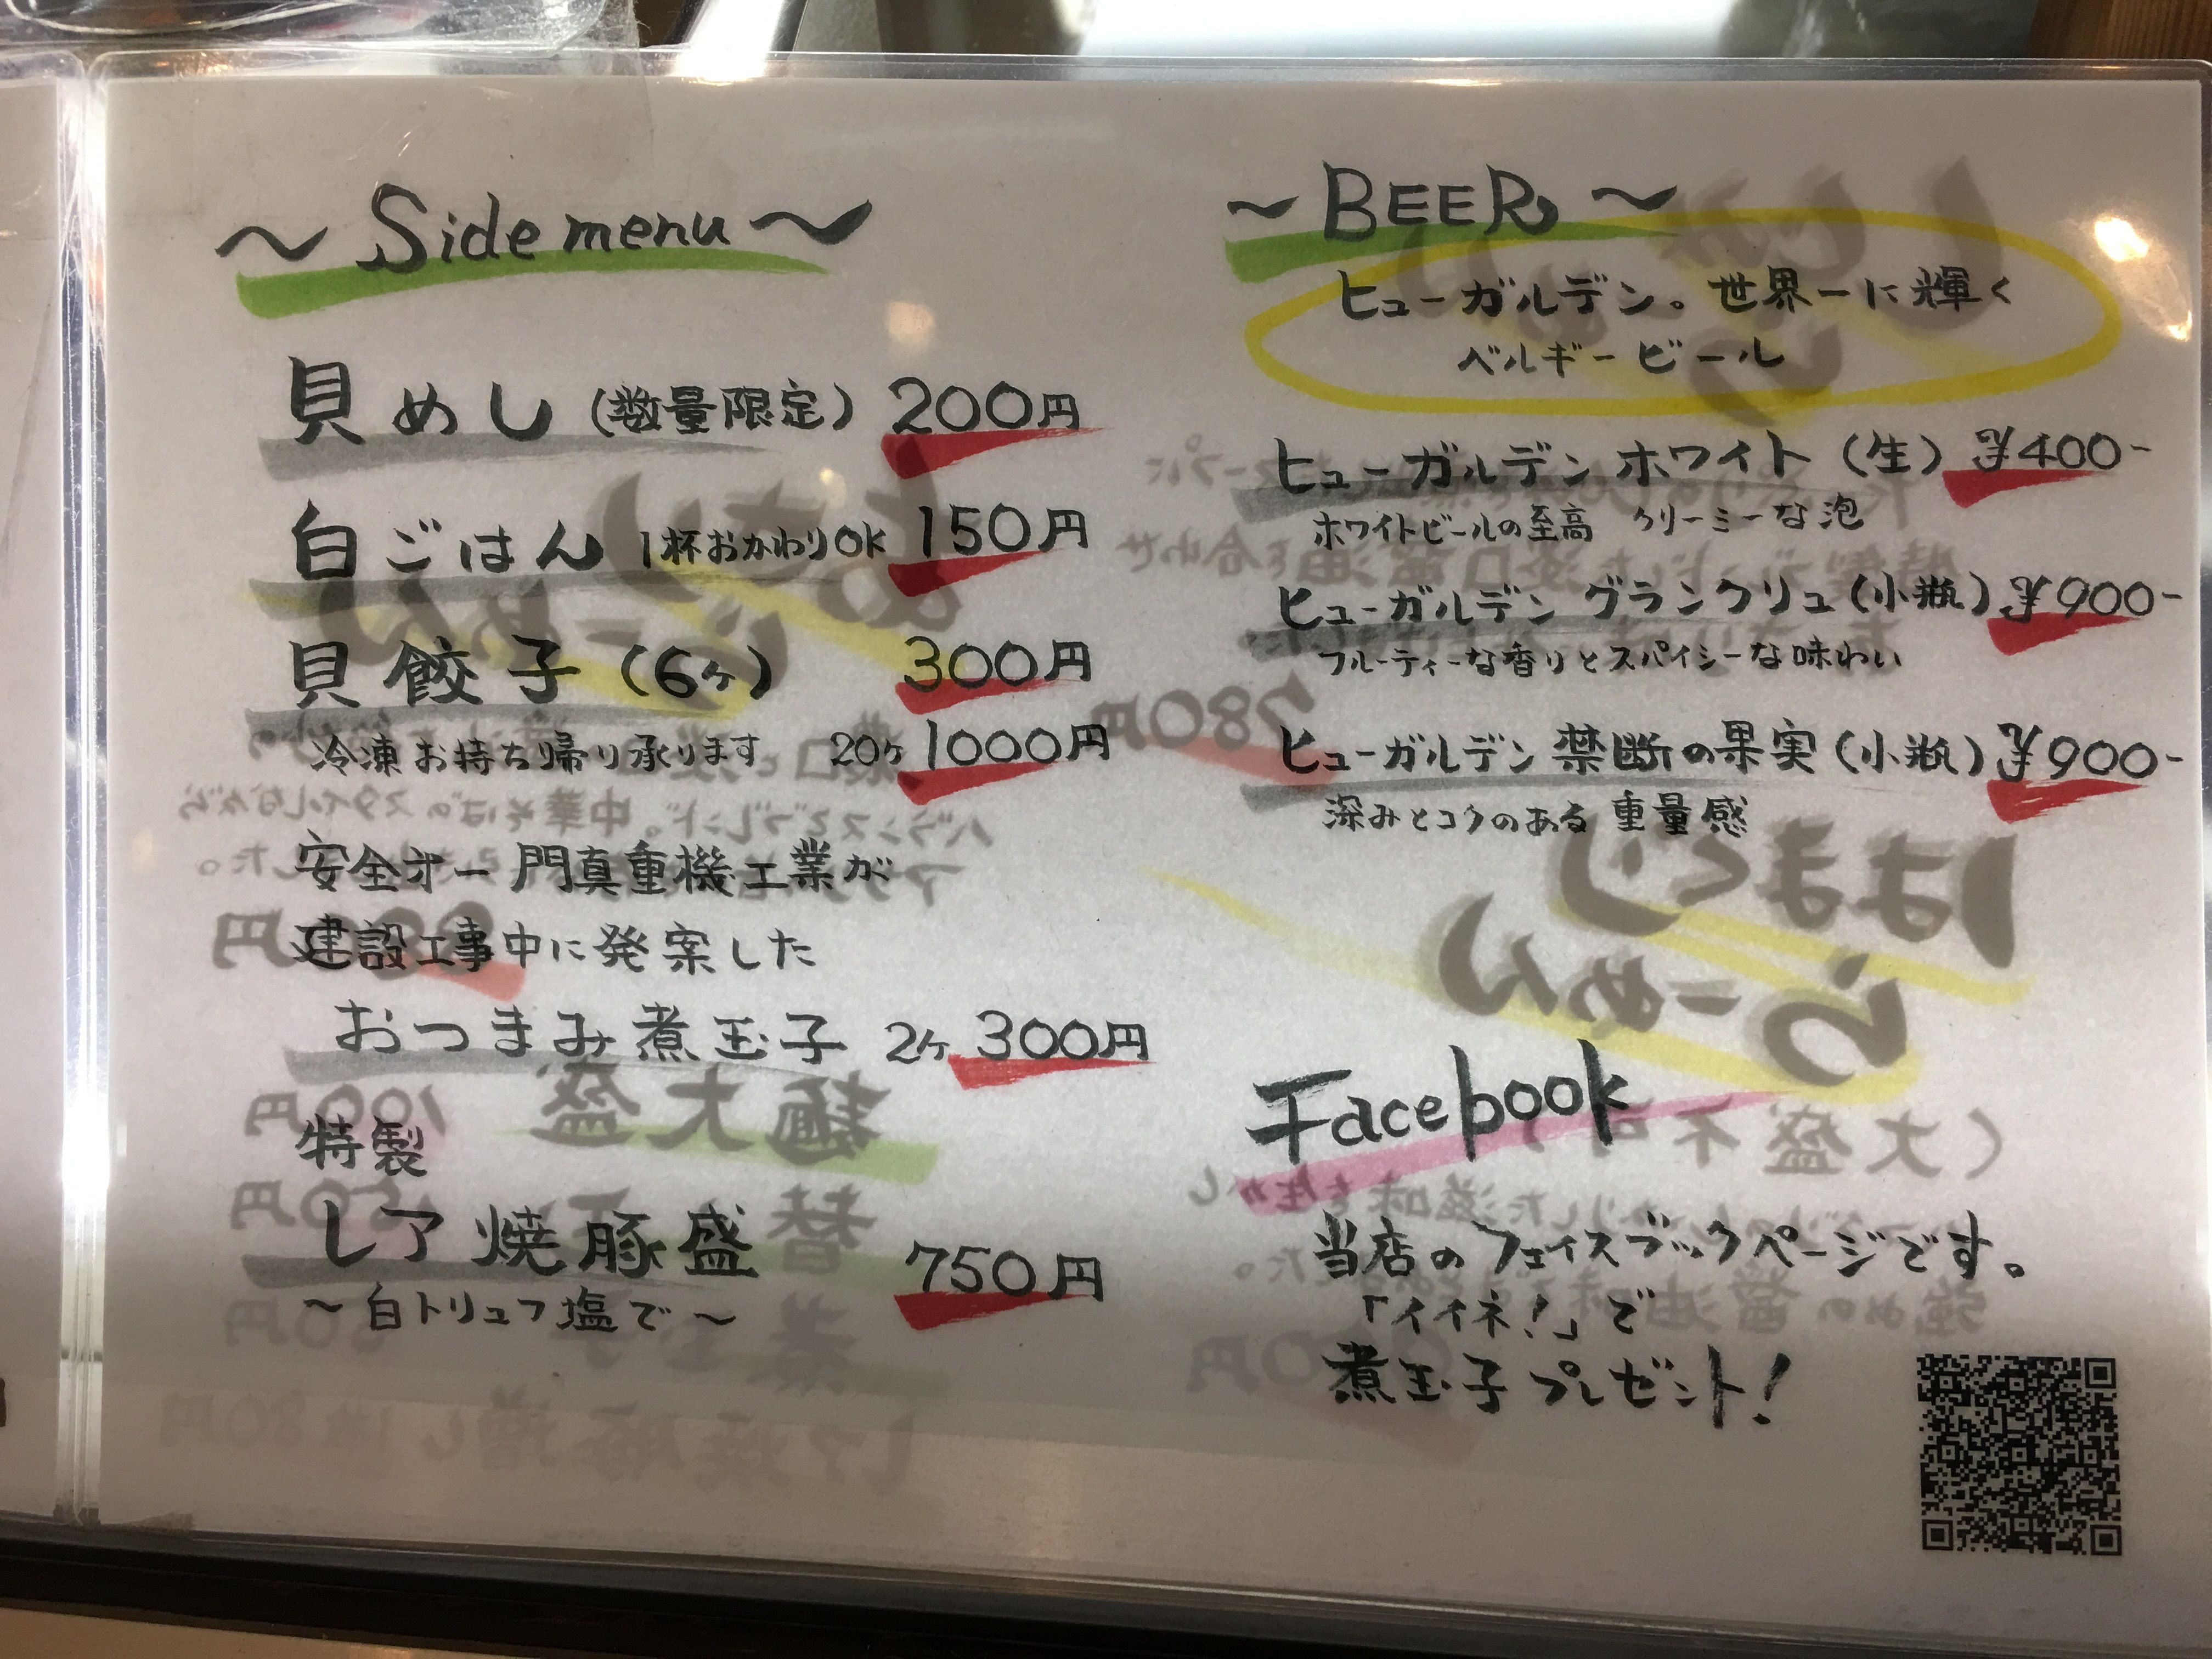 ～ Side menu ～
貝めし (数量限定) 200円
白ごはん 1杯おかわりOK 150円
貝餃子 (6ヶ) 300円
冷凍お持ち帰り承ります 20ヶ 1000円
安全オー 門真重機工業が
建設工事中に発案した
おつまみ煮玉子 2ヶ 300円
特製
レア焼豚盛 750円
～白トリュフ塩で～
～ BEER ～
ヒューガルデン。世界一に輝く
ベルギービール
ヒューガルデン ホワイト (生) ¥400-
ホワイトビールの至高 クリーミーな泡
ヒューガルデン グランクリュ (小瓶) ¥900-
フルーティーな香りとスパイシーな味わい
ヒューガルデン 禁断の果実 (小瓶) ¥900-
深みとコクのある重量感
Facebook
当店のフェイスブックページです。
「イイネ!」で
煮玉子プレゼント!